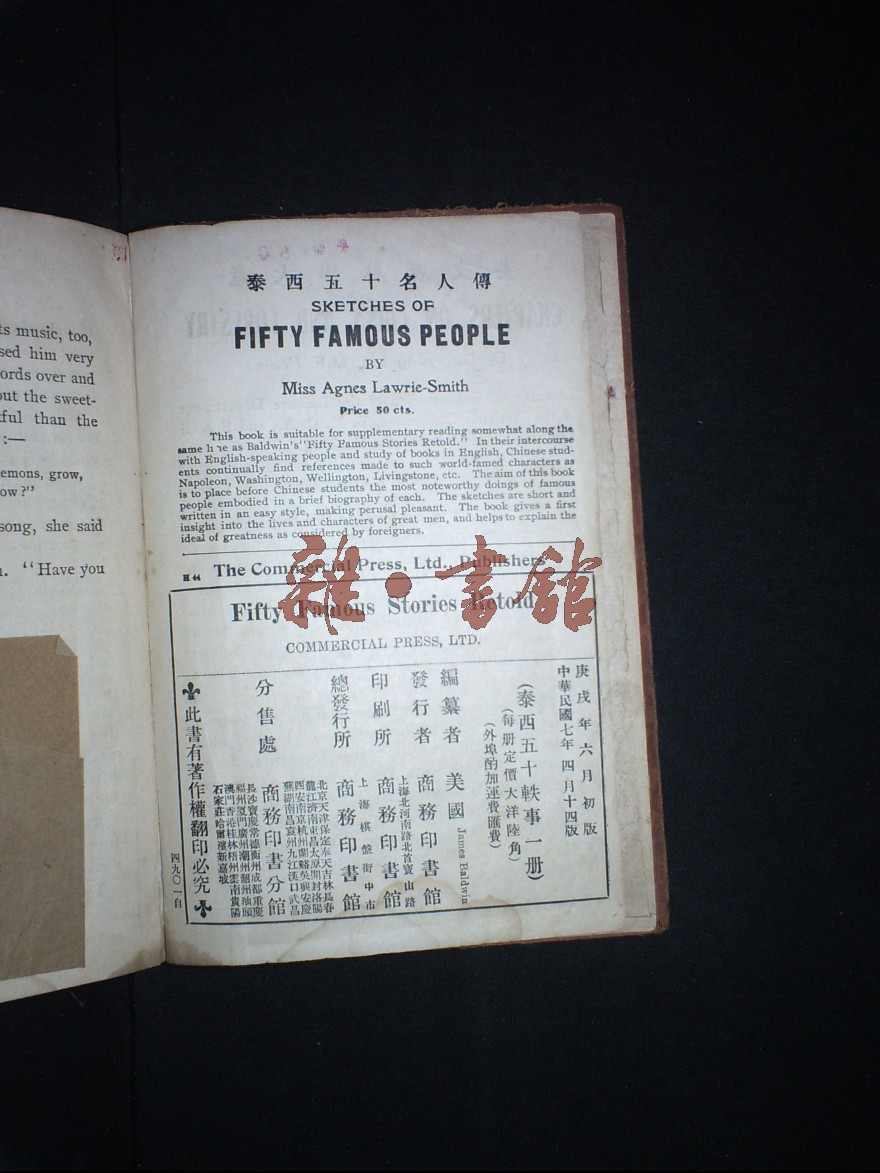 ts music, too,
sed him very
ords over and
out the sweet-
tful than the
:—
emons, grow,
ow?"
song, she said
n. "Have you
泰西五十名人傳
SKETCHES OF
FIFTY FAMOUS PEOPLE
BY
Miss Agnes Lawrie-Smith
Price 50 cts.
This book is suitable for supplementary reading somewhat along the
same line as Baldwin's "Fifty Famous Stories Retold." In their intercourse
with English-speaking people and study of books in English, Chinese stud-
ents continually find references made to such world-famed characters as
Napoleon, Washington, Wellington, Livingstone, etc. The aim of this book
is to place before Chinese students the most noteworthy doings of famous
people embodied in a brief biography of each. The sketches are short and
written in an easy style, making perusal pleasant. The book gives a first
insight into the lives and characters of great men, and helps to explain the
ideal of greatness as considered by foreigners.
H 44 The Commercial Press, Ltd., Publishers
雜·書館
Fifty Famous Stories Retold
COMMERCIAL PRESS, LTD.
庚戌年六月初版
中華民國七年四月十四版
(泰西五十軼事一册)
(每册定價大洋陸角)
(外埠酌加運費匯費)
編纂者 美國 James Baldwin
發行者 商務印書館
上海北河南路北首寶山路
印刷所 商務印書館
上海棋盤街中市
總發行所 商務印書館
北京天津保定奉天吉林長春
龍江濟南東昌太原開封洛陽
西安南京杭州蘭谿吳興安慶
蕪湖南昌袁州九江漢口武昌
分售處 商務印書分館
長沙寶慶常德衡州成都重慶
福州厦門廣州潮州韶州汕頭
澳門香港桂林梧州雲南貴陽
石家莊哈爾濱新嘉坡
此書有著作權翻印必究
四九〇一自